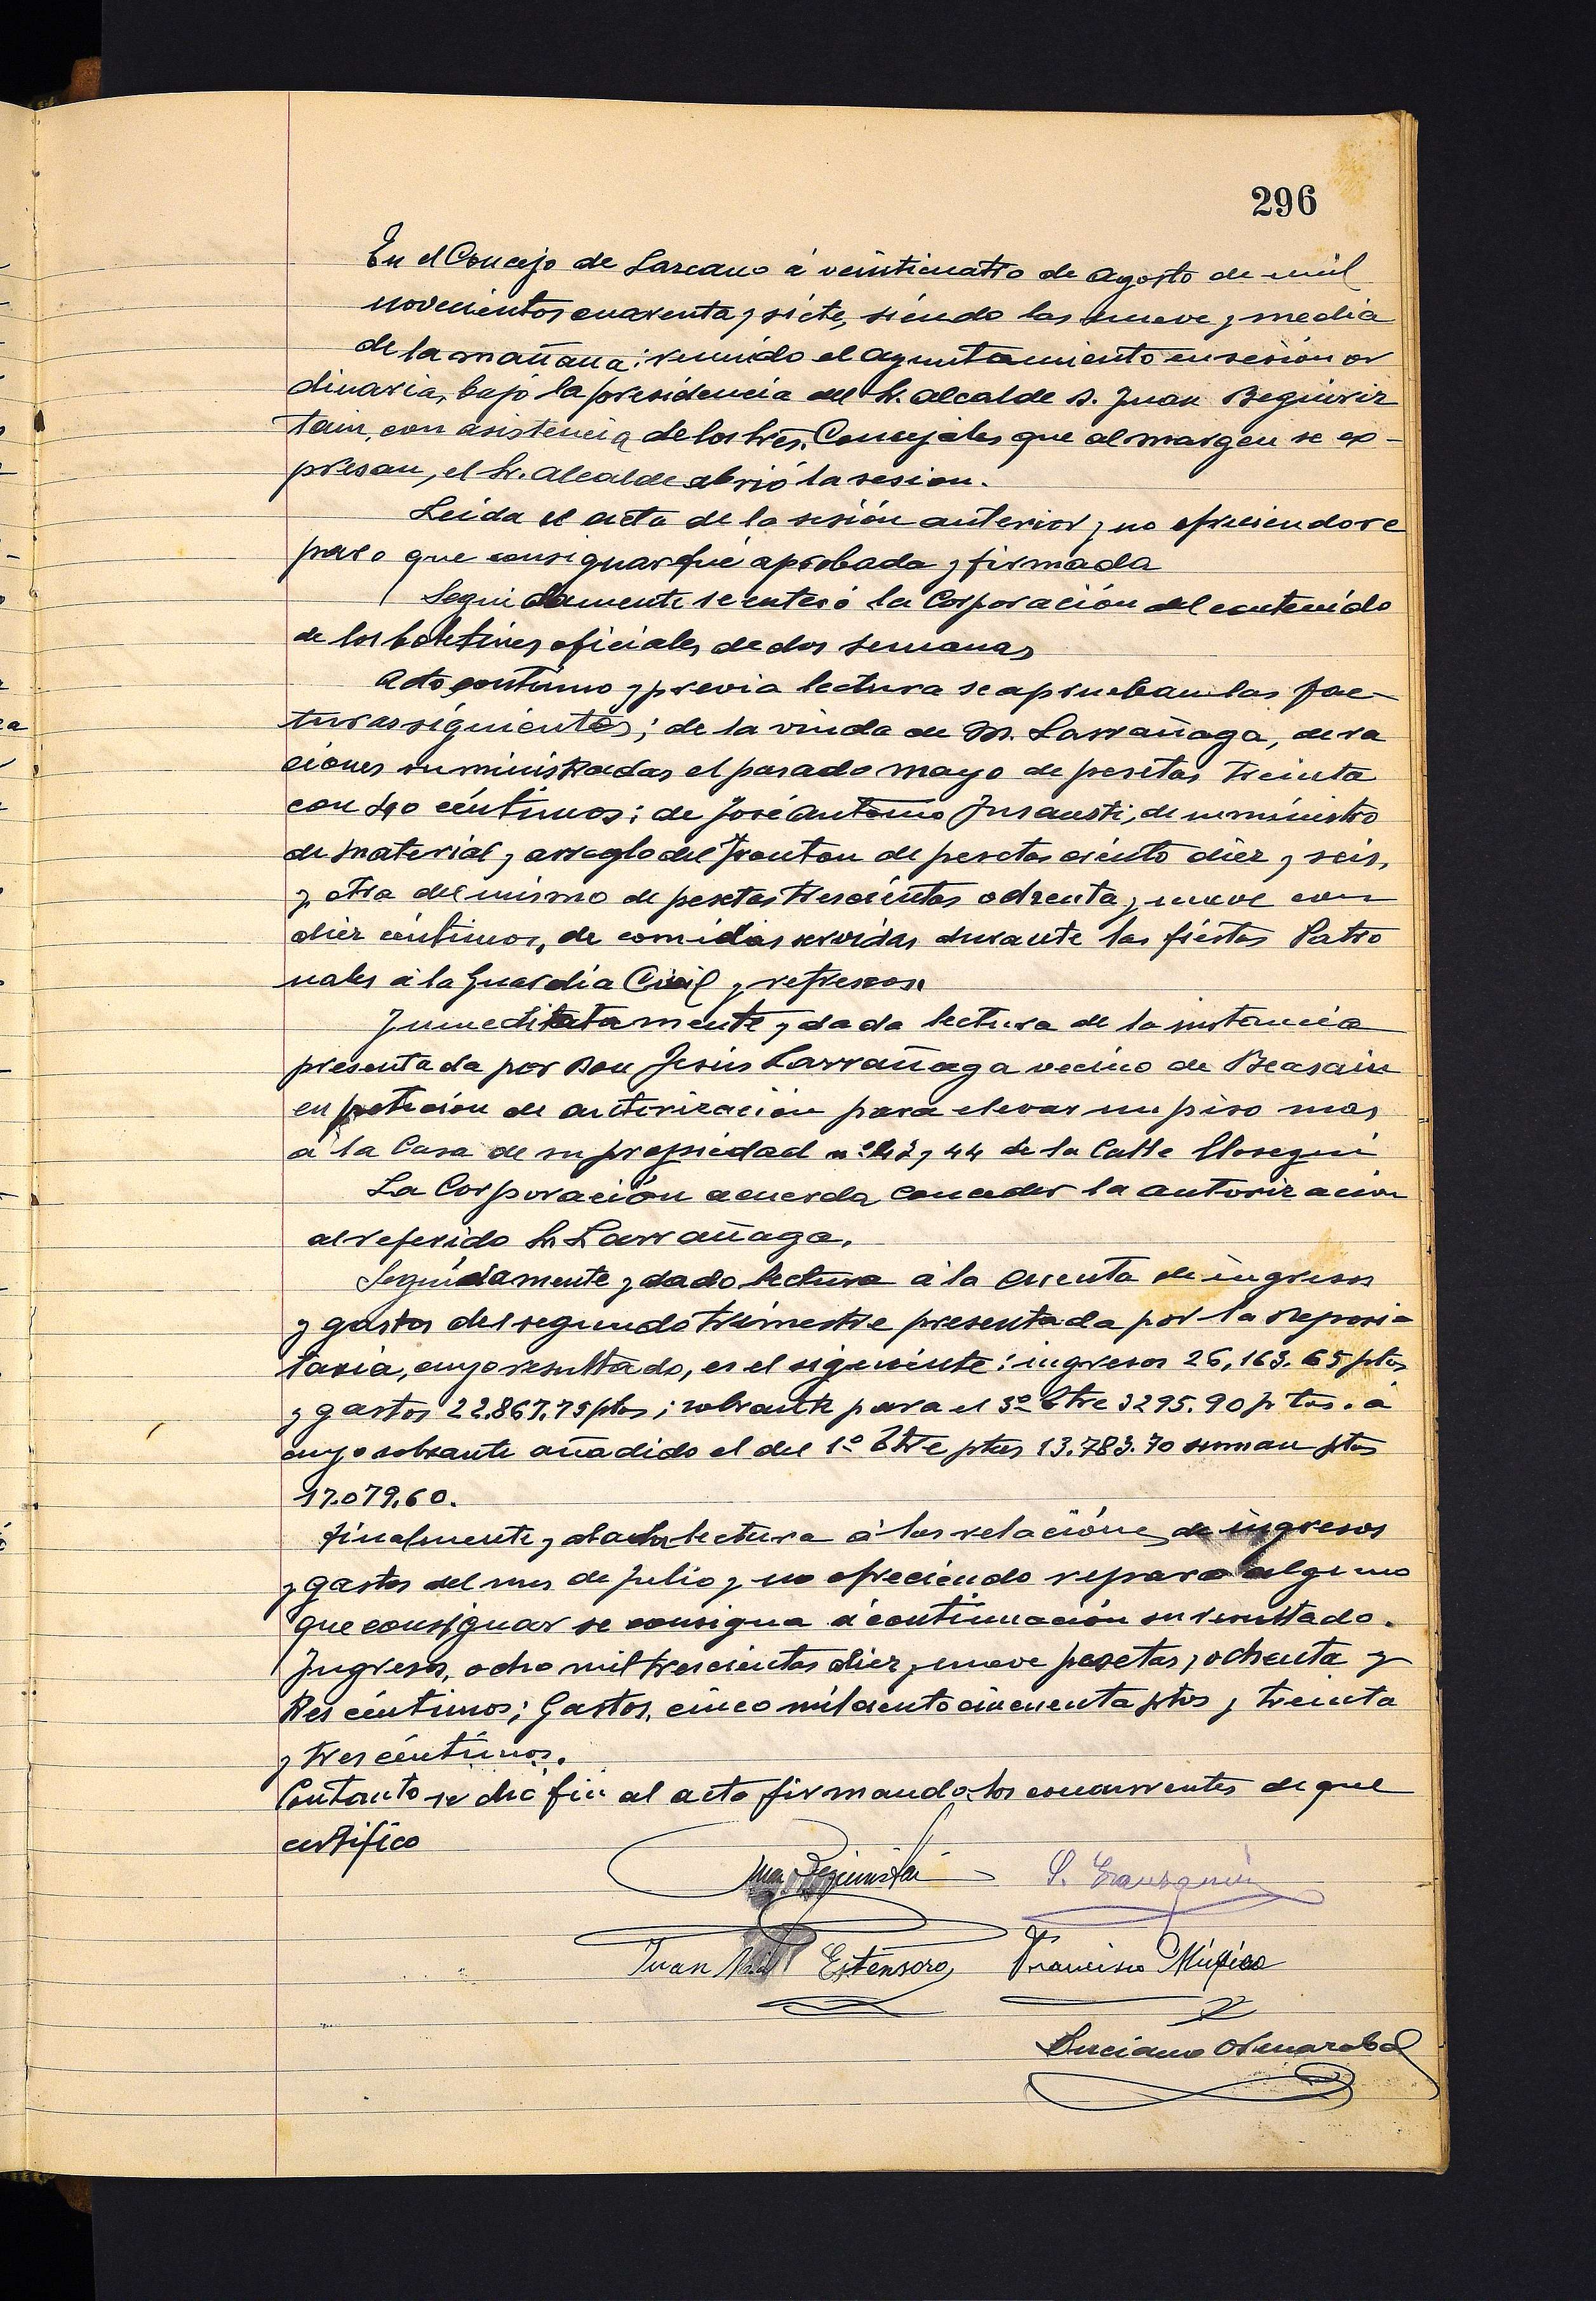 296
En el Concejo de Lazcano á veinticuatro de agosto de mil
novecientos cuarenta y siete, siendo las nueve y media
de la mañana: reunido el ayuntamiento en sesion or
dinaria, bajo la presidencia del Sr. alcalde D. Juan Beguiriz
tain, con asistencia de los Sres. Concejales que al margen se ex-
presan, el Sr. Alcalde abrió la sesion.
Leida el acta de la sesión anterior y no ofreciendo re
paro que consignar fué aprobada y firmada
Seguidamente se enteró la Corporación del contenido
de los boletines oficiales de dos semanas
Acto continuo y previa lectura se aprueban las fac-
turas siguientes; de la viuda de M. Larrañaga, de ra
ciones suministradas el pasado mayo de pesetas treinta
con 40 céntimos; de José Antonio Insausti, de suministro
de material y arreglo del Fronton de pesetas ciento diez y seis,
y otra del mismo de pesetas trescientas ochenta y nueve con
diez céntimos, de comidas servidas durante las fiestas Patro
nales á la Guardia Civil y refrescos.
Inmeditatamente y dada lectura de la instancia
presentada por Don Jesús Larrañaga vecino de Beasain
en petición de autorización para elevar un piso mas
á la Casa de su propiedad nº 43 y 44 de la Calle Elosegui
La Corporación acuerda conceder la autorizacion
al referido Sr. Larrañaga.
Seguidamente y dado lectura á la cuenta de ingresos
y gastos del segundo trimestre presentada por la Deposi-
taria, cuyo resultado, es el siguiente: ingresos 26,163.65 ptas
y gastos 22.867,75 ptas; sobrante para el 3º Ttre 3295.90 ptas. á
cuyo sobrante añadido el del 1º Ttre ptas 13.783.70 suman ptas
17.079,60.
finalmente y dada lectura á las relaciónes de ingresos
y gastos del mes de Julio y no ofreciendo reparo alguno
que consignar se consigna á continuación su resultado.
Ingresos, ocho mil trescientas diez y nueve pesetas y ochenta y
tres céntimos; Gastos, cinco mil ciento cincuenta ptas y treinta
y tres céntimos.
Con tanto se dió fin al acto firmando los concurrentes de que
certifico
Juan Beguiristain
Juan Estensoro
Francisco Múgica
Luciano